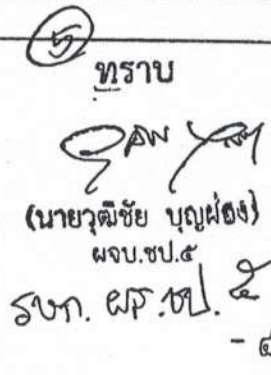 5
ทราบ
(นายวุฒิชัย บุญผ่อง)
ผจบ.ชป.๕
รษก. ผส.ชป. ๕